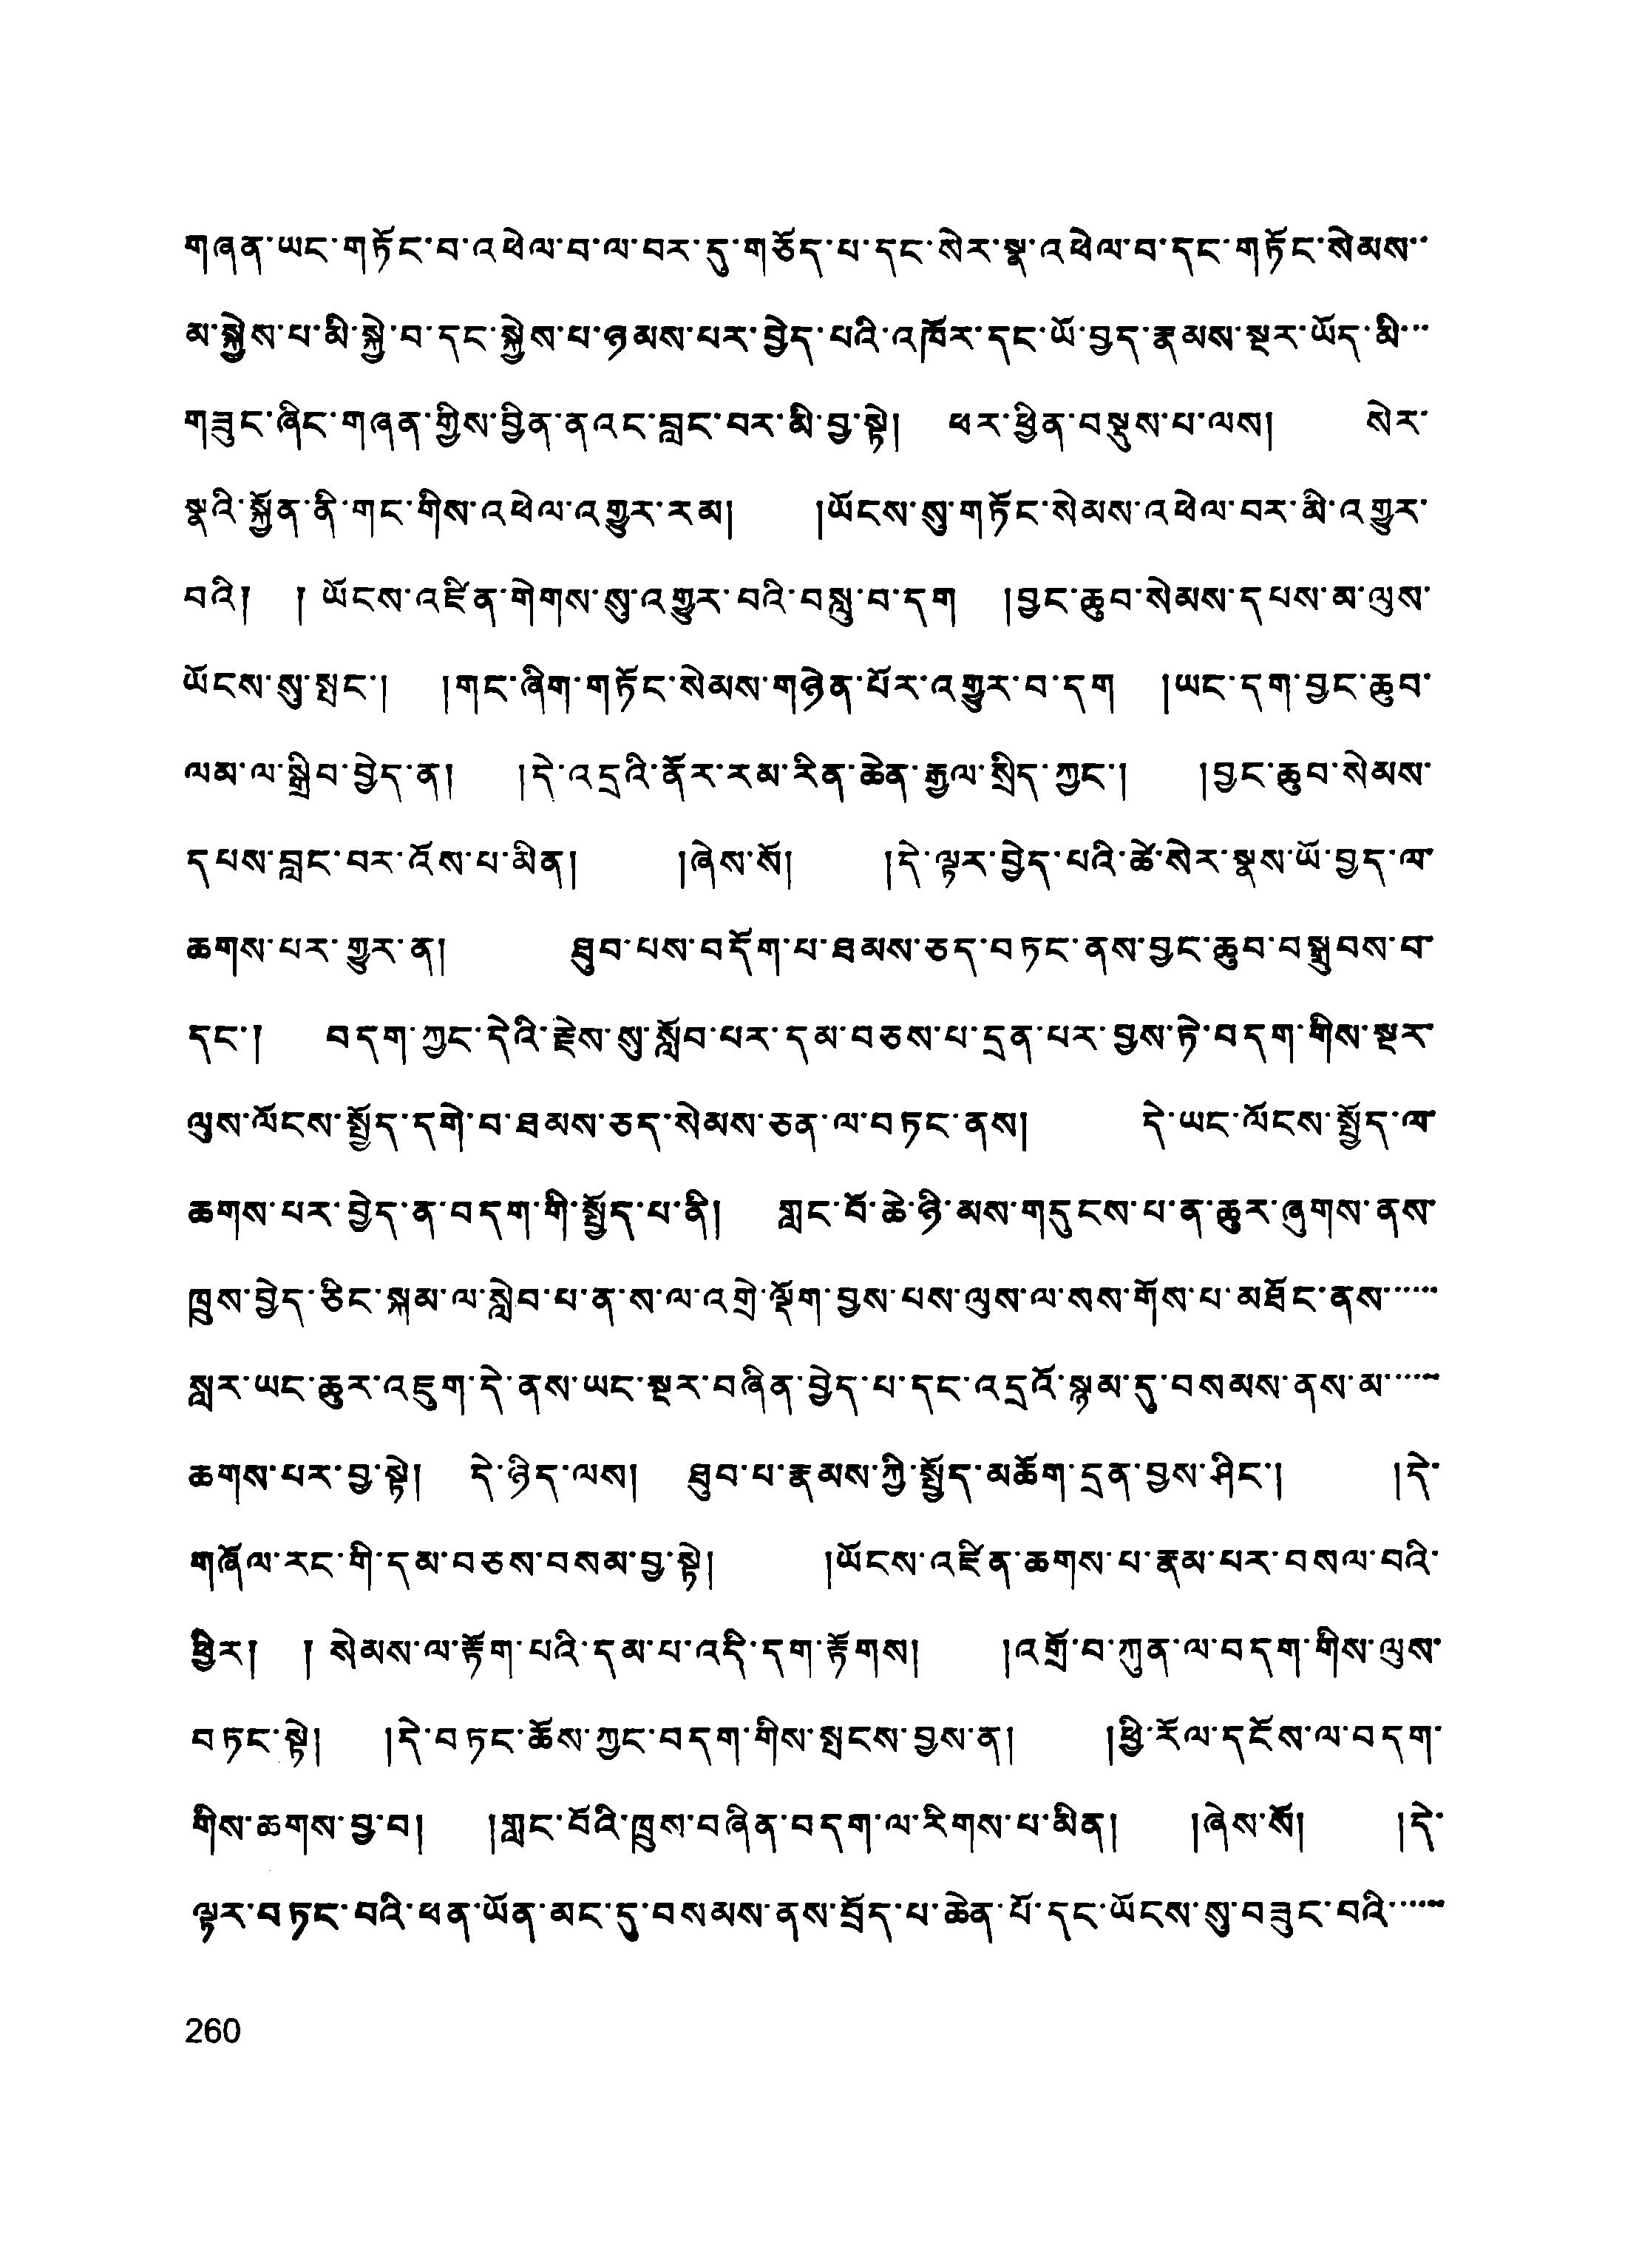 གཞན་ཡང་གཏོང་བ་འཕེལ་བ་ལ་བར་དུ་གཅོད་པ་དང་སེར་སྣ་འཕེལ་བ་དང་གཏོང་སེམས་་
མ་སྐྱེས་པ་མི་སྐྱེ་བ་དང་སྐྱེས་པ་ཉམས་པར་བྱེད་པའི་འཁོར་དང་ཡོ་བྱད་རྣམས་སྔར་ཡོད་མི་་་
གཟུང་ཞིང་གཞན་གྱིས་བྱིན་ནའང་བླང་བར་མི་བྱ་སྟེ། ཕར་ཕྱིན་བསྡུས་པ་ལས། སེར་
སྣའི་སྐྱོན་ནི་གང་གིས་འཕེལ་འགྱུར་རམ། །ཡོངས་སུ་གཏོང་སེམས་འཕེལ་བར་མི་འགྱུར་
བའི། ། ཡོངས་འཛིན་གེགས་སུ་འགྱུར་བའི་བསླུ་བ་དག །བྱང་ཆུབ་སེམས་དཔས་མ་ལུས་
ཡོངས་སུ་སྤང་། །གང་ཞིག་གཏོང་སེམས་གཉེན་པོར་འགྱུར་བ་དག །ཡང་དག་བྱང་ཆུབ་
ལམ་ལ་སྒྲིབ་བྱེད་ན། །དེ་འདྲའི་ནོར་རམ་རིན་ཆེན་རྒྱལ་སྲིད་ཀྱང་། །བྱང་ཆུབ་སེམས་
དཔས་བླང་བར་འོས་པ་མིན། །ཞེས་སོ། །དེ་ལྟར་བྱེད་པའི་ཚེ་སེར་སྣས་ཡོ་བྱད་ལ་
ཆགས་པར་གྱུར་ན། ཐུབ་པས་བདོག་པ་ཐམས་ཅད་བཏང་ནས་བྱང་ཆུབ་བསྒྲུབས་བ་
དང་། བདག་ཀྱང་དེའི་རྗེས་སུ་སློབ་པར་དམ་བཅས་པ་དྲན་པར་བྱས་ཏེ་བདག་གིས་སྔར་
ལུས་ལོངས་སྤྱོད་དགེ་བ་ཐམས་ཅད་སེམས་ཅན་ལ་བཏང་ནས། དེ་ཡང་ལོངས་སྤྱོད་ལ་
ཆགས་པར་བྱེད་ན་བདག་གི་སྤྱོད་པ་ནི། གླང་བོ་ཆེ་ཉི་མས་གདུངས་པ་ན་ཆུར་ཞུགས་ནས་
ཁྲུས་བྱེད་ཅིང་སྐམ་ལ་སླེབ་པ་ན་ས་ལ་འགྲེ་ལྡོག་བྱས་པས་ལུས་ལ་སས་གོས་པ་མཐོང་ནས་་་་་་
སླར་ཡང་ཆུར་འཇུག་དེ་ནས་ཡང་སྔར་བཞིན་བྱེད་པ་དང་འདྲའོ་སྙམ་དུ་བསམས་ནས་མ་་་་་་
ཆགས་པར་བྱ་སྟེ། དེ་ཉིད་ལས། ཐུབ་པ་རྣམས་ཀྱི་སྤྱོད་མཆོག་དྲན་བྱས་ཤིང་། །དེ་
གཞོལ་རང་གི་དམ་བཅས་བསམ་བྱ་སྟེ། །ཡོངས་འཛིན་ཆགས་པ་རྣམ་པར་བསལ་བའི་
ཕྱིར། ། སེམས་ལ་རྟོག་པའི་དམ་པ་འདི་དག་རྟོགས། །འགྲོ་བ་ཀུན་ལ་བདག་གིས་ལུས་
བཏང་སྟེ། །དེ་བཏང་ཆོས་ཀྱང་བདག་གིས་སྤངས་བྱས་ན། །ཕྱི་རོལ་དངོས་ལ་བདག་
གིས་ཆགས་བྱ་བ། །གླང་བོའི་ཁྲུས་བཞིན་བདག་ལ་རིགས་པ་མིན། །ཞེས་སོ། །དེ་
ལྟར་བཏང་བའི་ཕན་ཡོན་མང་དུ་བསམས་ནས་བྲོད་པ་ཆེན་པོ་དང་ཡོངས་སུ་བཟུང་བའི་་་་་་
260